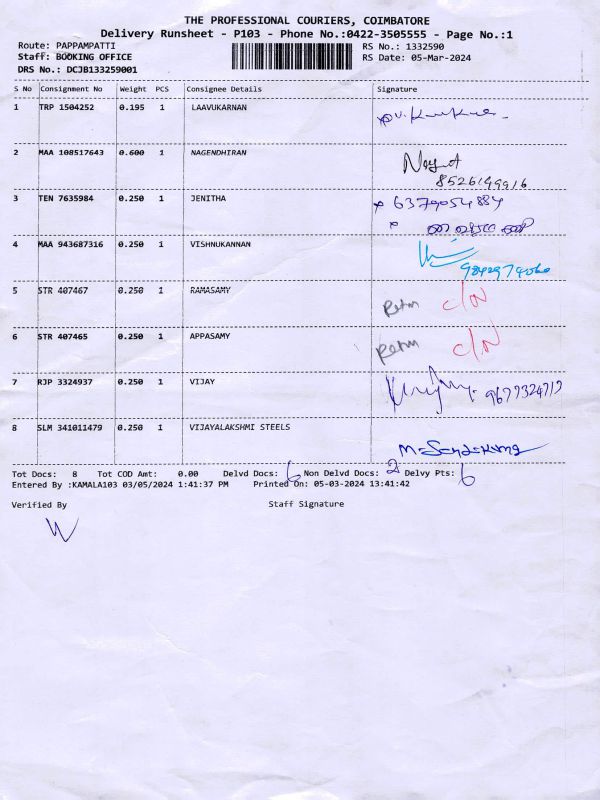 THE PROFESSIONAL COURIERS, COIMBATORE
Delivery Runsheet - P103 - Phone No.:0422-3505555 - Page No.:1
Route: PAPPAMPATTI RS No.: 1332590
Staff: BOOKING OFFICE RS Date: 05-Mar-2024
DRS No.: DCJB133259001
S No Consignment No Weight PCS Consignee Details Signature
1 TRP 1504252 0.195 1 LAAVUKARNAN
2 MAA 108517643 0.600 1 NAGENDHIRAN
8526149916
3 TEN 7635984 0.250 1 JENITHA 6379054884
4 MAA 943687316 0.250 1 VISHNUKANNAN
5 STR 407467 0.250 1 RAMASAMY Retn C/N
6 STR 407465 0.250 1 APPASAMY Retn C/N
7 RJP 3324937 0.250 1 VIJAY
8 SLM 341011479 0.250 1 VIJAYALAKSHMI STEELS
Tot Docs: 8 Tot COD Amt: 0.00 Delvd Docs: 6 Non Delvd Docs: 2 Delvy Pts: 6
Entered By :KAMALA103 03/05/2024 1:41:37 PM Printed On: 05-03-2024 13:41:42
Verified By Staff Signature